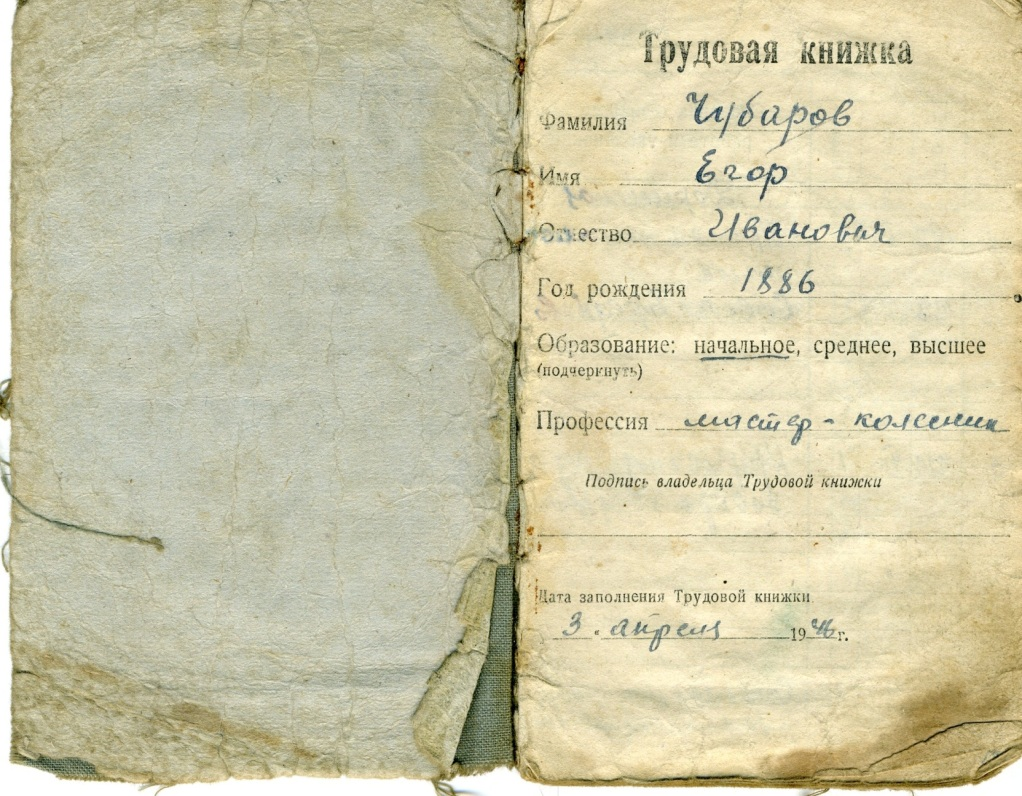 Трудовая книжка
Фамилия Чубаров
Имя Егор
Отчество Иванович
Год рождения 1886
Образование: начальное, среднее, высшее
(подчеркнуть)
Профессия мастер-колесник
Подпись владельца Трудовой книжки
Дата заполнения Трудовой книжки
3 апреля 1946 г.